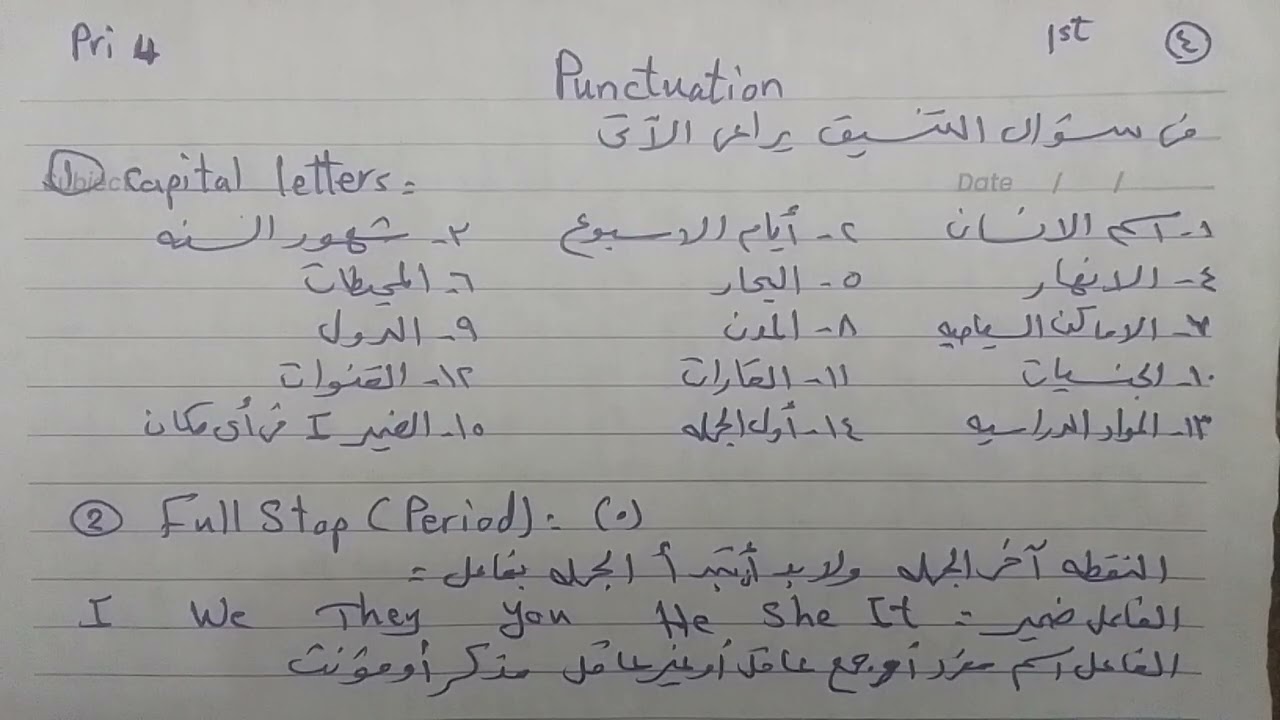 Pri 4 1st ٤
Punctuation
فى سؤال التنسيق يراعى الآتى
① Capital letters:
Date / /
١- اسم الانسان ٢- أيام الاسبوع ٣- شهور السنه
٤- الانهار ٥- البحار ٦- المحيطات
٧- الاماكن السياحيه ٨- المدن ٩- الدول
١٠- الجنسيات ١١- القارات ١٢- القنوات
١٣- المواد الدراسيه ١٤- أول الجمله ١٥- الضمير I فى أى مكان
② Full Stop (Period): (.)
النقطه آخر الجمله ولابد أن تبدأ الجمله بفاعل =
الفاعل ضمير = I We They You He She It
الفاعل اسم مفرد أو جمع عاقل أو غير عاقل مذكر أو مؤنث